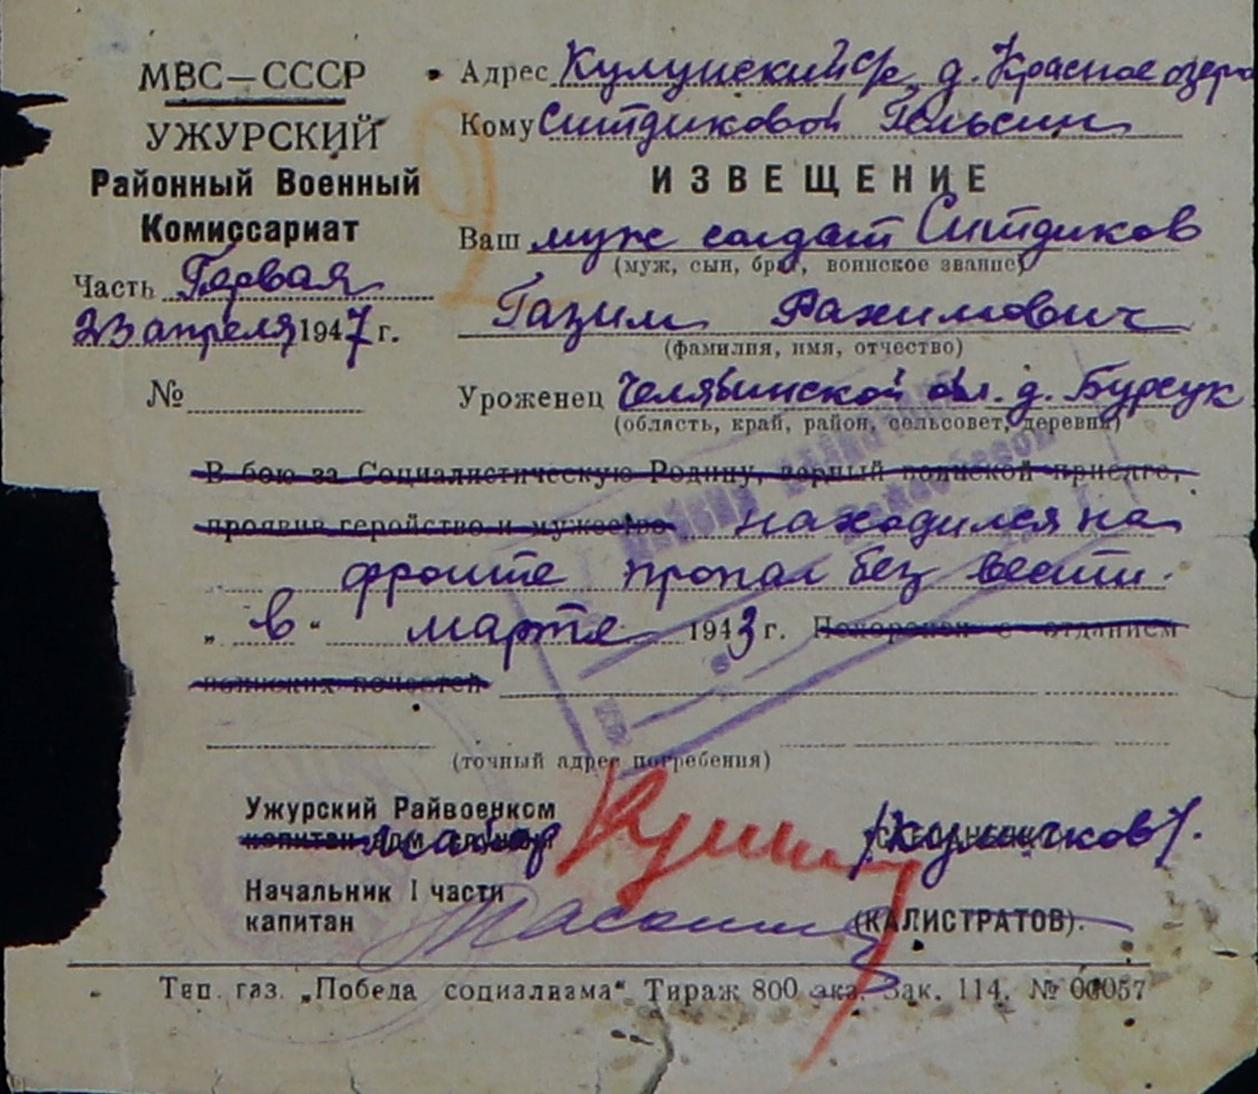 МВС—СССР
УЖУРСКИЙ
Районный Военный
Комиссариат
Часть Первая
23 апреля 1947 г.
№
Адрес Кулунский с/с, д. Красное озеро
Кому Ситдиковой Гельсин
ИЗВЕЩЕНИЕ
Ваш муж солдат Ситдиков
(муж, сын, брат, воинское звание)
Газим Рахимович
(фамилия, имя, отчество)
Уроженец Челябинской обл. д. Бурсук
(область, край, район, сельсовет, деревня)
В бою за Социалистическую Родину, верный воинской присяге,
проявив геройство и мужество находился на
фронте пропал без вести.
„ в “ марте 1943 г. Похоронен с отданием
воинских почестей
(точный адрес погребения)
Ужурский Райвоенком
капитан майор /Куличков/.
Начальник I части
капитан (КАЛИСТРАТОВ).
Тип. газ. „Победа социализма“ Тираж 800 экз. Зак. 114. № 00057